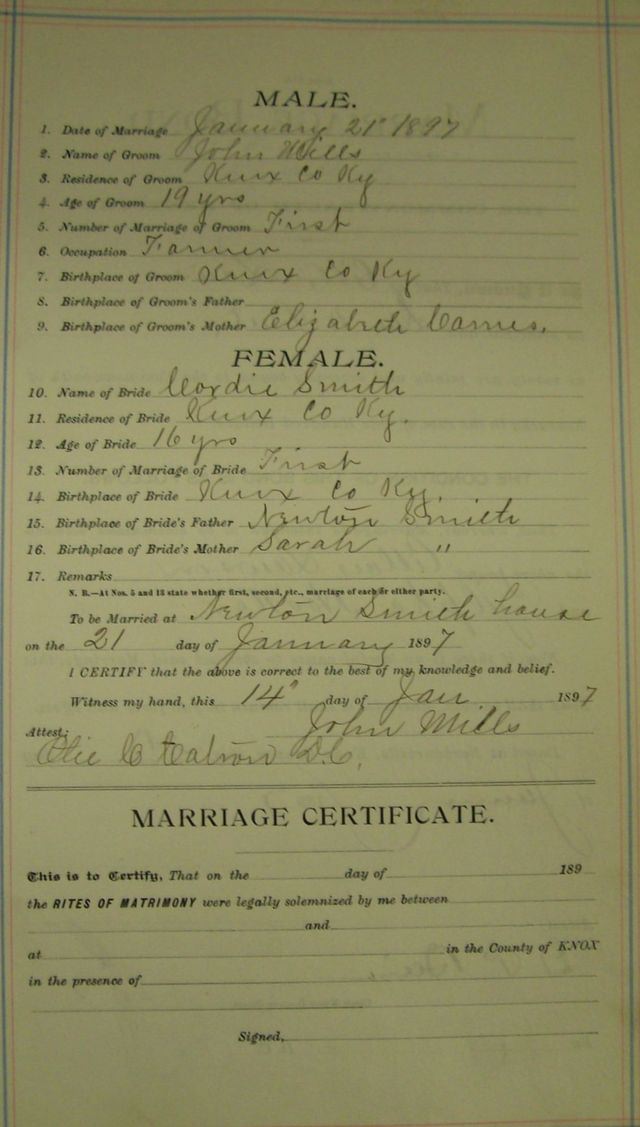 MALE.
1. Date of Marriage January 21" 1897
2. Name of Groom John Mills
3. Residence of Groom Knox Co Ky
4. Age of Groom 19 yrs
5. Number of Marriage of Groom First
6. Occupation Farmer
7. Birthplace of Groom Knox Co Ky
8. Birthplace of Groom's Father
9. Birthplace of Groom's Mother Elizabeth Carnes.
FEMALE.
10. Name of Bride Cordie Smith
11. Residence of Bride Knox Co Ky.
12. Age of Bride 16 yrs
13. Number of Marriage of Bride First
14. Birthplace of Bride Knox Co Ky.
15. Birthplace of Bride's Father Newton Smith
16. Birthplace of Bride's Mother Sarah "
17. Remarks
N. B.—At Nos. 5 and 13 state whether first, second, etc., marriage of each or either party.
To be Married at Newton Smith house
on the 21 day of January 1897
I CERTIFY that the above is correct to the best of my knowledge and belief.
Witness my hand, this 14" day of Jan 1897
John Mills
Attest:
C Catron D.C.
MARRIAGE CERTIFICATE.
This is to Certify, That on the day of 189
the RITES OF MATRIMONY were legally solemnized by me between
and
at in the County of KNOX
in the presence of
Signed,